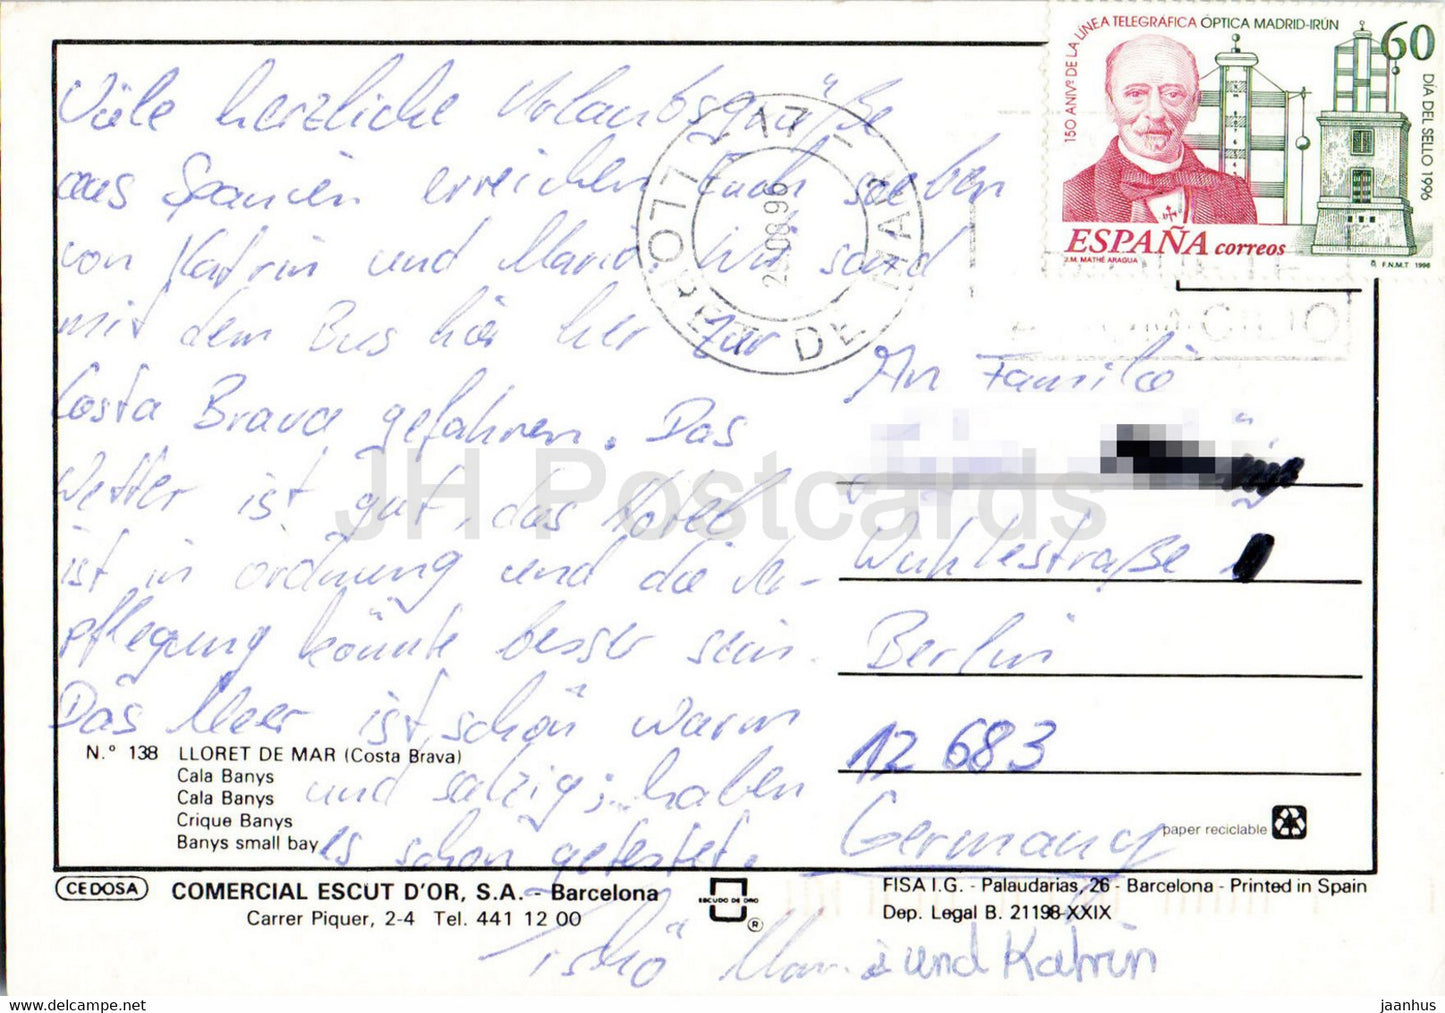 150 ANIVº DE LA LÍNEA TELEGRÁFICA ÓPTICA MADRID-IRÚN
60
DÍA DEL SELLO 1996
ESPAÑA correos
J.M. MATHÉ ARAGUA
F.N.M.T 1996
LLORET DE MAR
08 96
A DOMICILIO
Viele herzliche Urlaubsgrüße
aus Spanien erreichen Euch soeben
von Katrin und Mario. Wir sind
mit dem Bus hier her zur
Costa Brava gefahren. Das
Wetter ist gut, das Hotel
ist in ordnung und die Ver-
pflegung könnte besser sein.
Das Meer ist schön warm
und salzig; haben
es schon getestet.
Tschö Mario und Katrin
An Familie
Wuhlestraße
Berlin
12 683
Germany
N.º 138 LLORET DE MAR (Costa Brava)
Cala Banys
Cala Banys
Crique Banys
Banys small bay
paper reciclable
CEDOSA COMERCIAL ESCUT D'OR, S.A. - Barcelona
Carrer Piquer, 2-4 Tel. 441 12 00
ESCUDO DE ORO
®
FISA I.G. - Palaudarias, 26 - Barcelona - Printed in Spain
Dep. Legal B. 21198-XXIX
JH Postcards
jaanhus